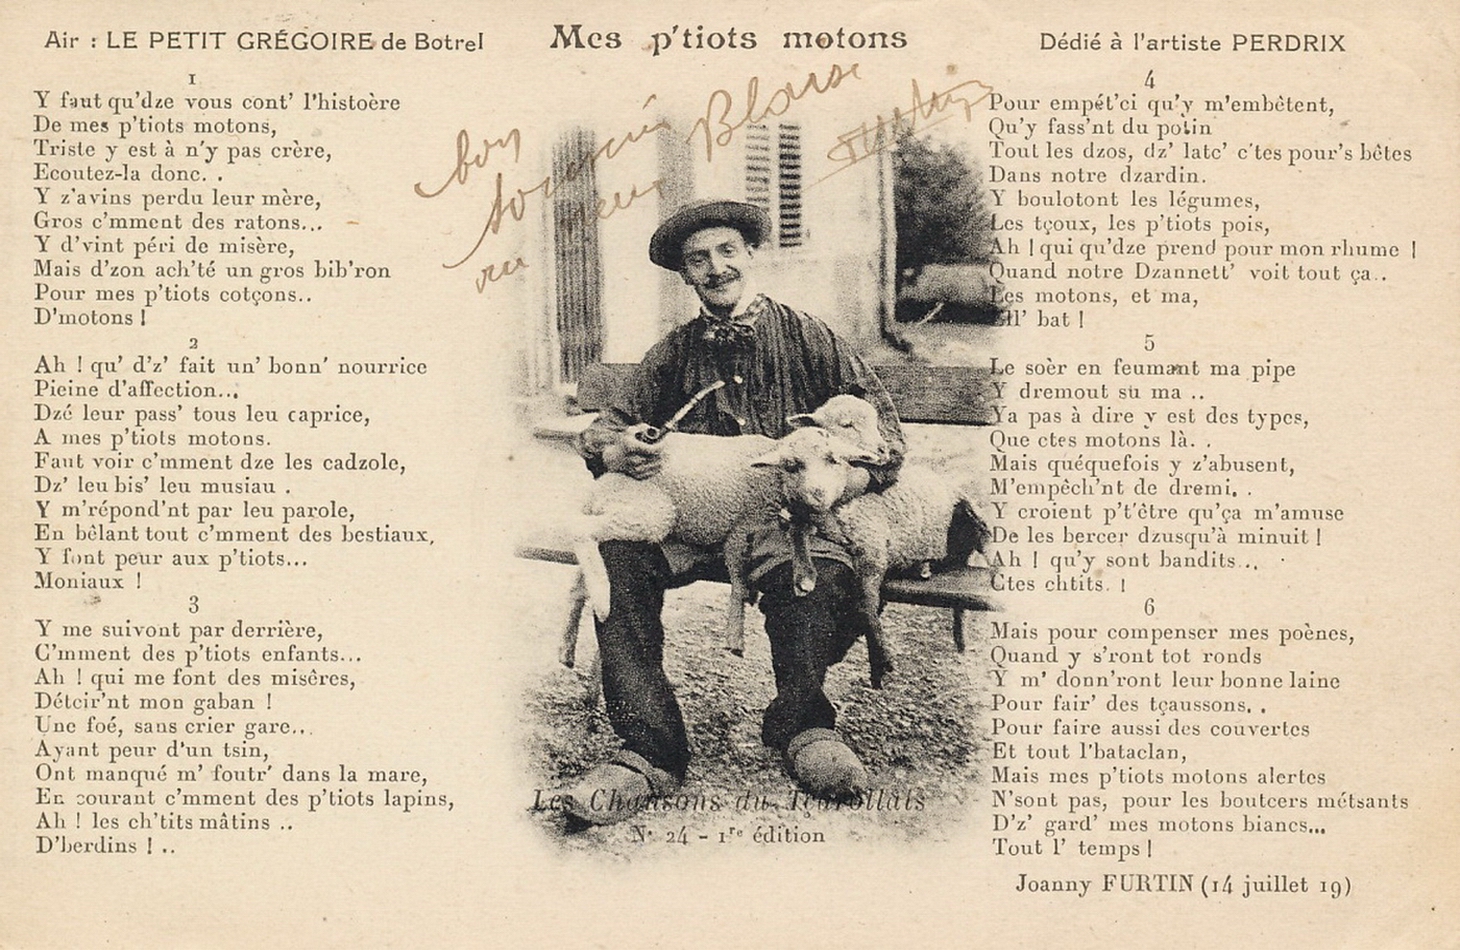 Air : LE PETIT GRÉGOIRE de Botrel
Mes p'tiots motons
Dédié à l'artiste PERDRIX
1
Y faut qu'dze vous cont' l'histoère
De mes p'tiots motons,
Triste y est à n'y pas crère,
Ecoutez-la donc. .
Y z'avins perdu leur mère,
Gros c'mment des ratons...
Y d'vint péri de misère,
Mais d'zon ach'té un gros bib'ron
Pour mes p'tiots cotçons..
D'motons !
2
Ah ! qu' d'z' fait un' bonn' nourrice
Pleine d'affection...
Dzé leur pass' tous leu caprice,
A mes p'tiots motons.
Faut voir c'mment dze les cadzole,
Dz' leu bis' leu musiau .
Y m'répond'nt par leu parole,
En bêlant tout c'mment des bestiaux,
Y font peur aux p'tiots...
Moniaux !
3
Y me suivont par derrière,
C'mment des p'tiots enfants...
Ah ! qui me font des misêres,
Détcir'nt mon gaban !
Une foé, sans crier gare...
Ayant peur d'un tsin,
Ont manqué m' foutr' dans la mare,
En courant c'mment des p'tiots lapins,
Ah ! les ch'tits mâtins ..
D'berdins ! ..
bon
souvenir
Blaise
Furtin
Les Chansons du
N° 24 - 1re édition
4
Pour empét'ci qu'y m'embêtent,
Qu'y fass'nt du potin
Tout les dzos, dz' latc' c'tes pour's bêtes
Dans notre dzardin.
Y boulotont les légumes,
Les tçoux, les p'tiots pois,
Ah ! qui qu'dze prend pour mon rhume !
Quand notre Dzannett' voit tout ça..
Les motons, et ma,
Ell' bat !
5
Le soèr en feumant ma pipe
Y dremout su ma ..
Ya pas à dire y est des types,
Que ctes motons là. .
Mais quéquefois y z'abusent,
M'empêch'nt de dremi. .
Y croient p't'être qu'ça m'amuse
De les bercer dzusqu'à minuit !
Ah ! qu'y sont bandits...
Ctes chtits. !
6
Mais pour compenser mes poènes,
Quand y s'ront tot ronds
Y m' donn'ront leur bonne laine
Pour fair' des tçaussons. .
Pour faire aussi des couvertes
Et tout l'bataclan,
Mais mes p'tiots motons alertes
N'sont pas, pour les boutcers métsants
D'z' gard' mes motons blancs...
Tout l' temps !
Joanny FURTIN (14 juillet 19)